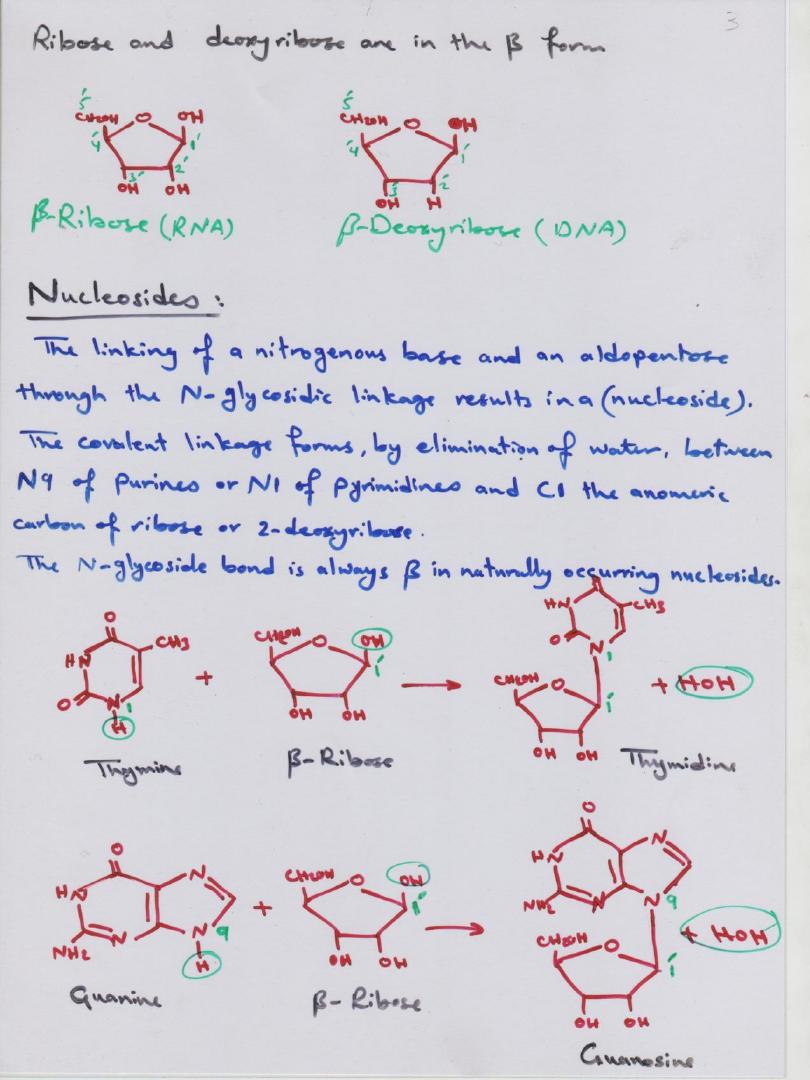 3
Ribose and deoxyribose are in the β form
5'
CH2OH O OH
4' 1'
3' 2'
OH OH
β-Ribose (RNA)
5'
CH2OH O OH
4' 1'
3' 2'
OH H
β-Deoxyribose (DNA)
Nucleosides :
The linking of a nitrogenous base and an aldopentose
through the N-glycosidic linkage results in a (nucleoside).
The covalent linkage forms, by elimination of water, between
N9 of purines or N1 of pyrimidines and C1 the anomeric
carbon of ribose or 2-deoxyribose.
The N-glycoside bond is always β in naturally occurring nucleosides.
O
CH3
HN
O N 1
H
Thymine
+
CH2OH O OH
1'
OH OH
β-Ribose
O
HN CH3
O N 1
CH2OH O
1'
OH OH
Thymidine
+ HOH
O
HN N
NH2 N N 9
H
Guanine
+
CH2OH O OH
1'
OH OH
β-Ribose
O
HN N
NH2 N N 9
CH2OH O
1'
OH OH
Guanosine
+ HOH